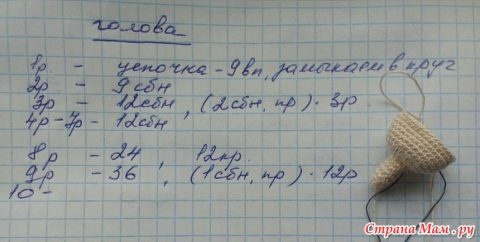 голова
1р - цепочка - 9вп, замыкаем в круг
2р - 9сбн
3р - 12сбн, (2сбн, пр) · 3р
4р-7р - 12сбн
8р - 24, 12пр.
9р - 36, (1сбн, пр) · 12р
10 -
Страна Мам.ру